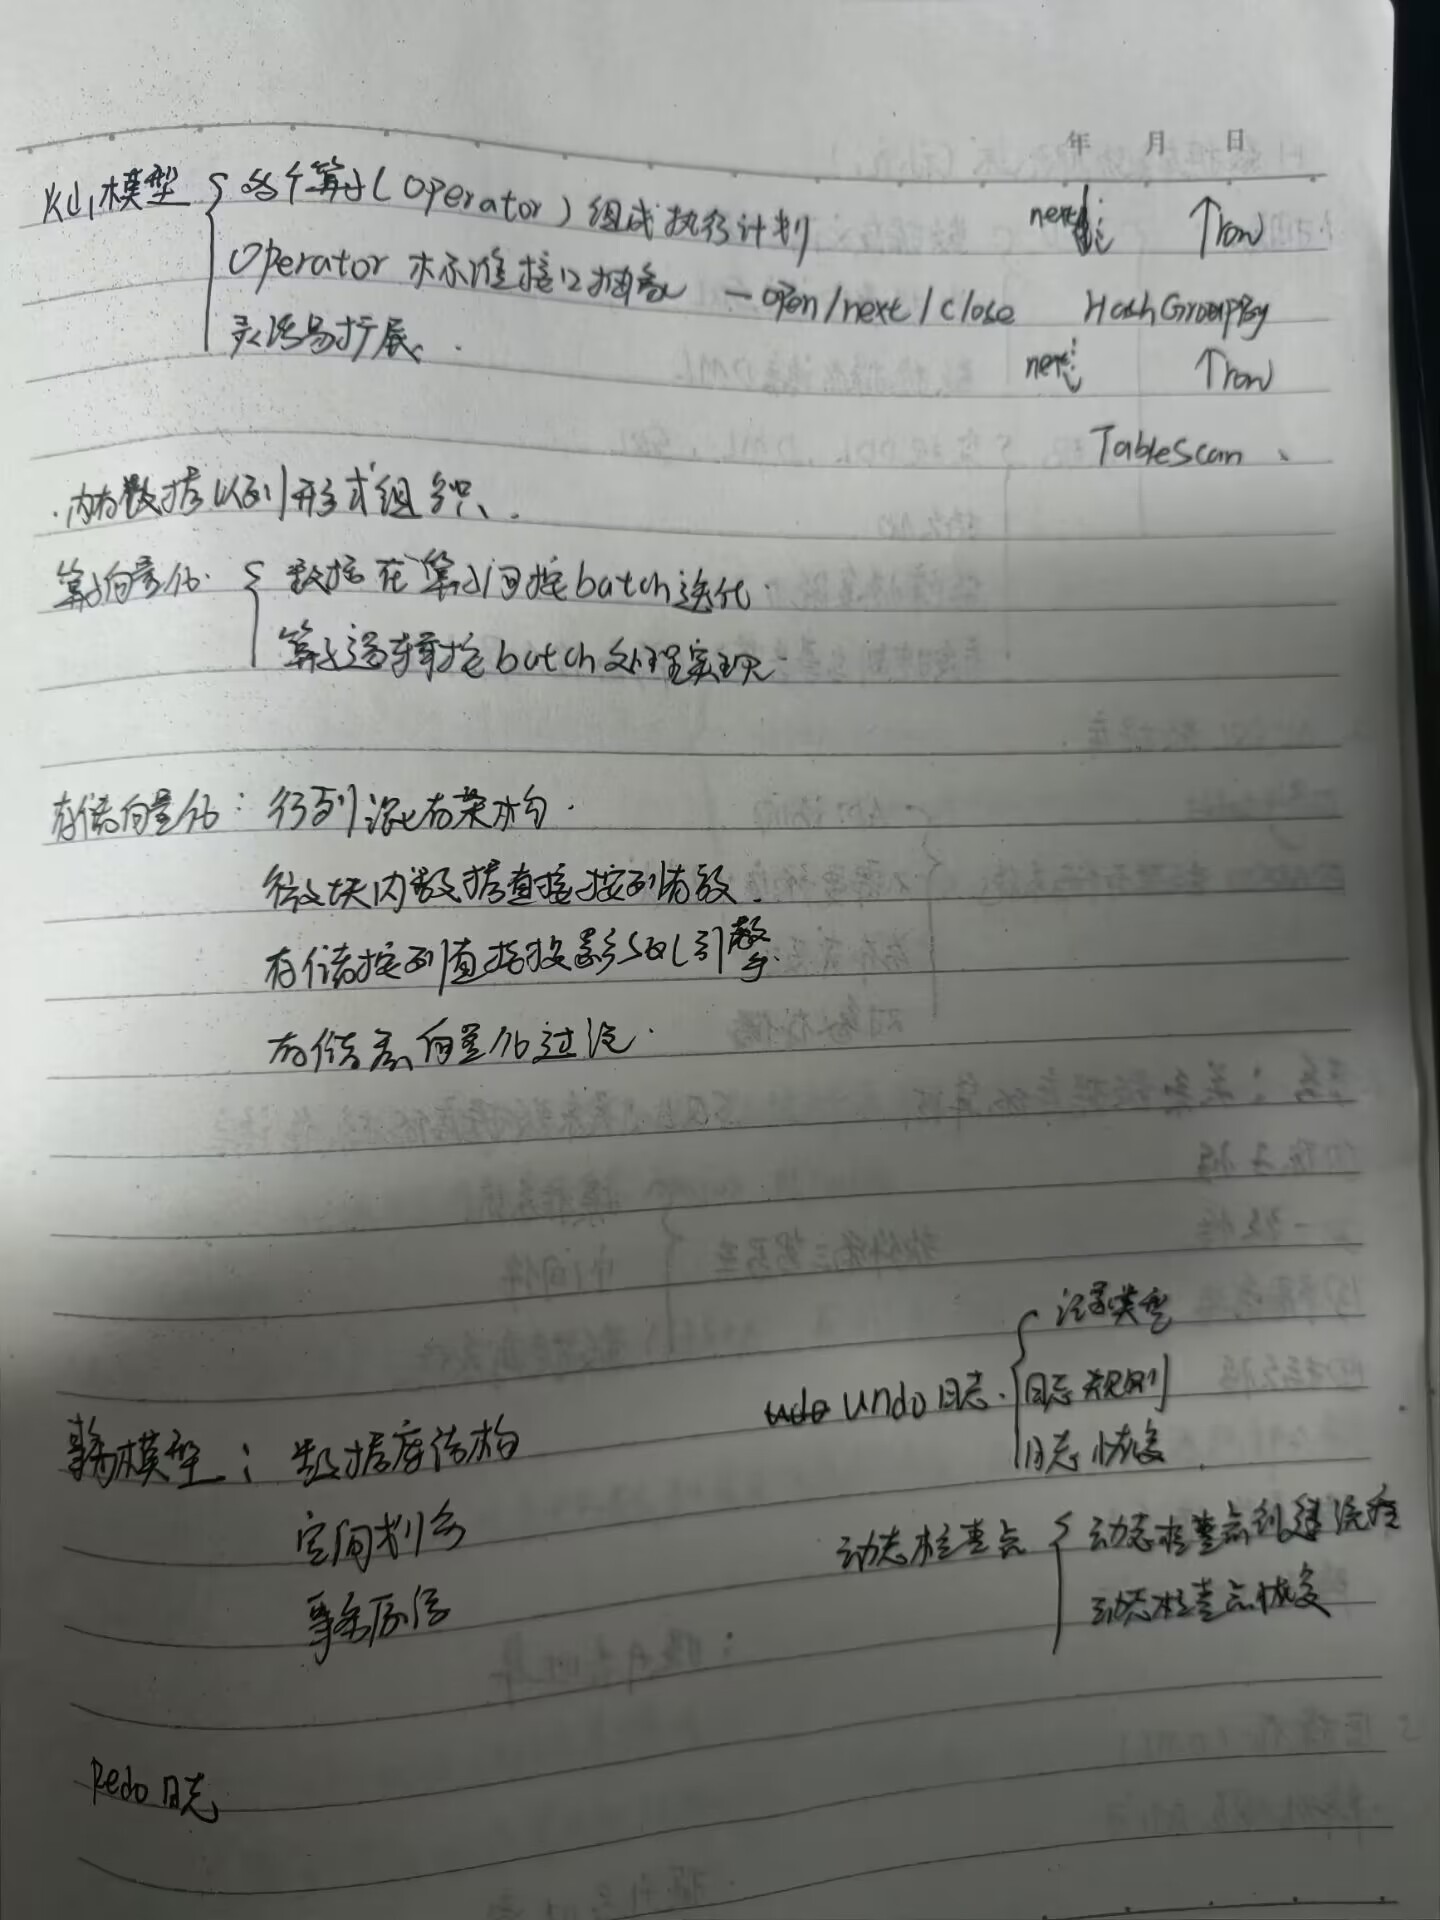 年 月 日
火山模型 { 各个算子(Operator)组成执行计划
Operator 标准接口抽象 — open/next/close
灵活易扩展.
next ↑row
HashGroupBy
next ↑row
TableScan
内存数据以列形式组织.
算子向量化. { 数据在算子间按batch迭代.
算子逻辑按batch处理实现.
存储向量化: 行列混存架构.
微块内数据直接按列存放.
存储按列直接投影SQL引擎.
存储层向量化过滤.
事务模型: 数据库结构
空间划分
事务原语
undo日志. { 记录类型
日志规则
日志恢复
动态检查点 { 动态检查点创建流程
动态检查点恢复
Redo日志